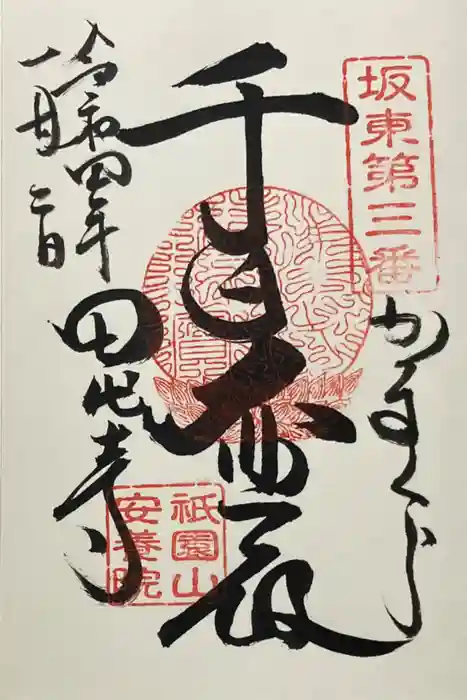 坂東第三番
かまくら
千手
令和四年
一月二日
田代寺
祇園山
安養院